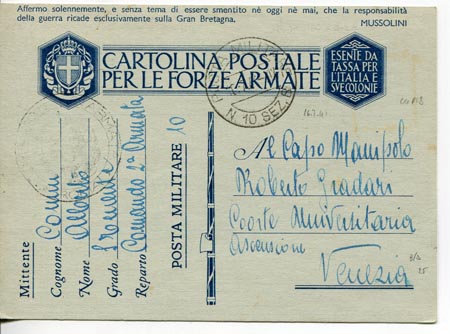 Affermo solennemente, e senza tema di essere smentito nè oggi nè mai, che la responsabilità
della guerra ricade esclusivamente sulla Gran Bretagna.
MUSSOLINI
CARTOLINA POSTALE
PER LE FORZE ARMATE
ESENTE DA
TASSA PER
L'ITALIA E
SVE COLONIE
N. 10 SEZ. B
Mittente
Cognome Comin
Nome Alberto
Grado
Reparto Comando 2ª Armata
POSTA MILITARE 10
Al Capo Manipolo
Roberto Gradari
Coorte Universitaria
Ascensione
Venezia